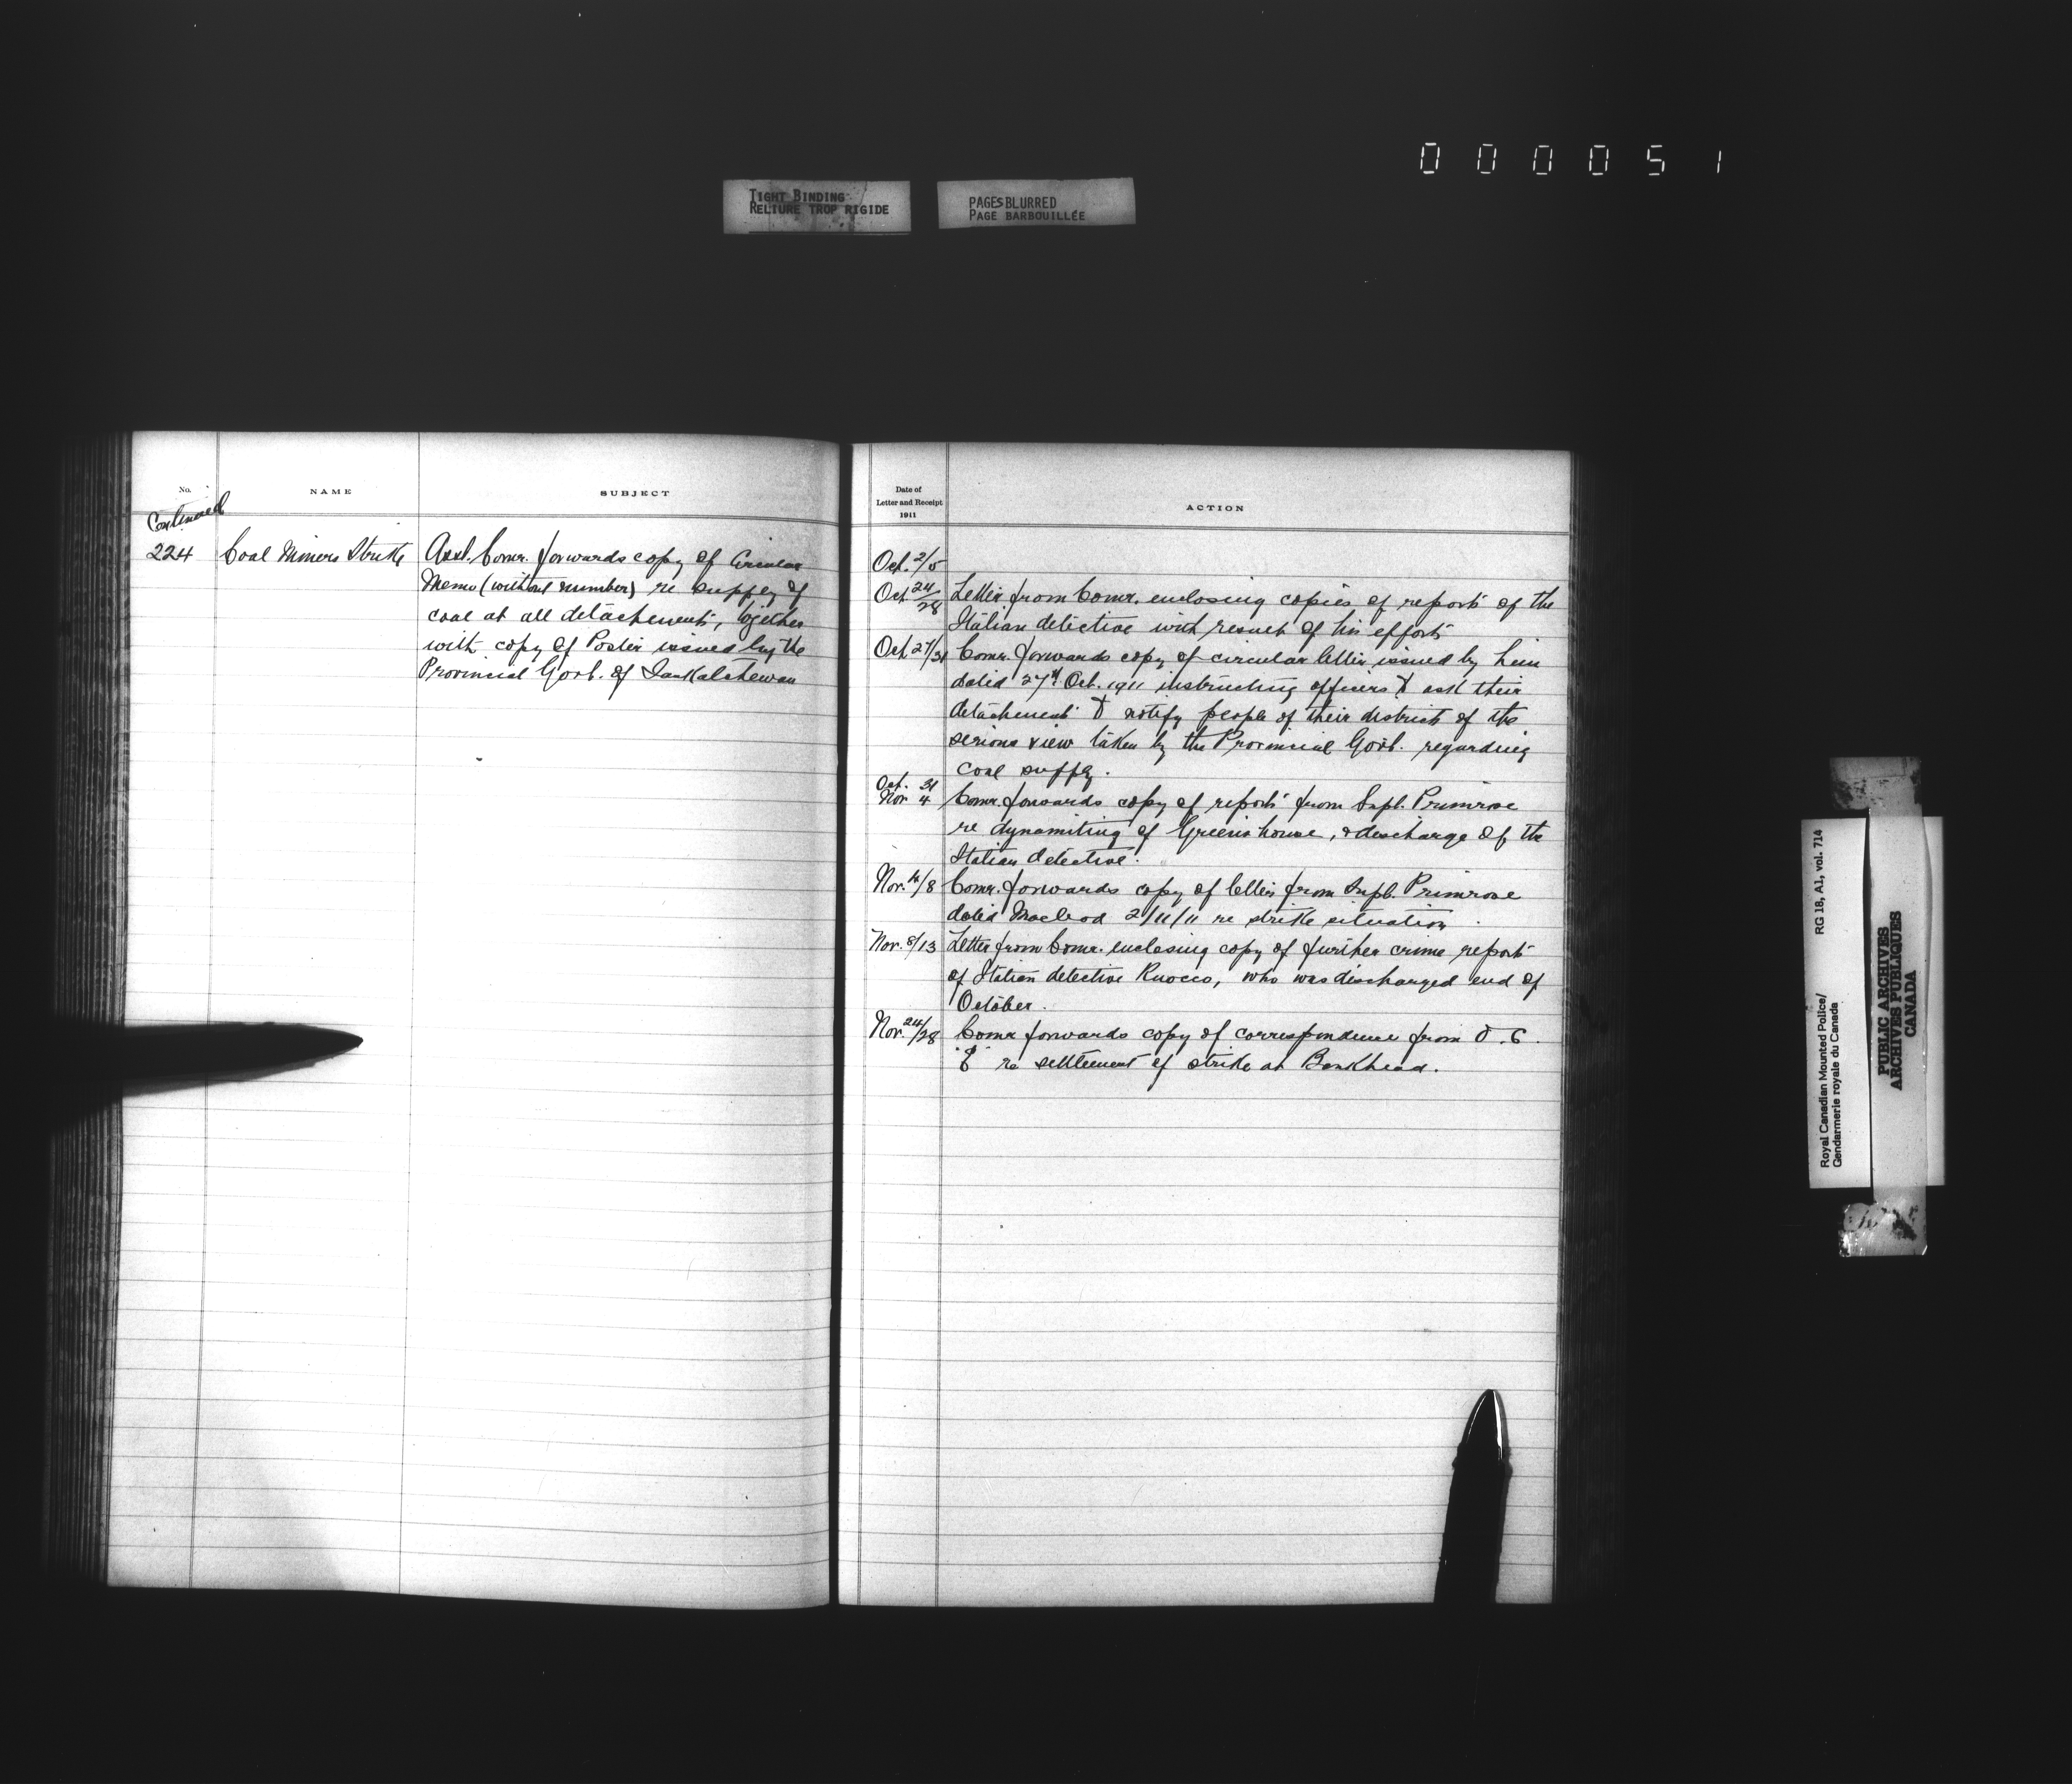 0 0 0 0 5 1
TIGHT BINDING
RELIURE TROP RIGIDE
PAGES BLURRED
PAGE BARBOUILLÉE
No.
NAME
SUBJECT
Continued
224 Coal Miners Strike
Asst. Comr. forwards copy of Circular
Memo (without number) re supply of
coal at all detachments, together
with copy of Poster issued by the
Provincial Govt. of Saskatchewan
Date of
Letter and Receipt
1911
ACTION
Oct. 2/5
Oct 24/28 Letter from Comr. enclosing copies of reports of the
Italian detective with result of his efforts
Oct 27/31 Comr. forwards copy of circular letter issued by him
dated 27th Oct. 1911 instructing officers to ask their
detachments to notify people of their districts of the
serious view taken by the Provincial Govt. regarding
coal supply.
Oct. 31
Nov 4 Comr. forwards copy of reports from Supt. Primrose
re dynamiting of Green's house, & discharge of the
Italian detective.
Nov. 4/8 Comr. forwards copy of letter from Supt. Primrose
dated Macleod 2/11/11 re strike situation.
Nov. 8/13 Letter from Comr. enclosing copy of further crime reports
of Italian detective Ruocco, who was discharged end of
October.
Nov. 24/28 Comr forwards copy of correspondence from O.C.
"E" re settlement of strike at Bankhead.
RG 18, A1, vol. 714
Royal Canadian Mounted Police/
Gendarmerie royale du Canada
PUBLIC ARCHIVES
ARCHIVES PUBLIQUES
CANADA